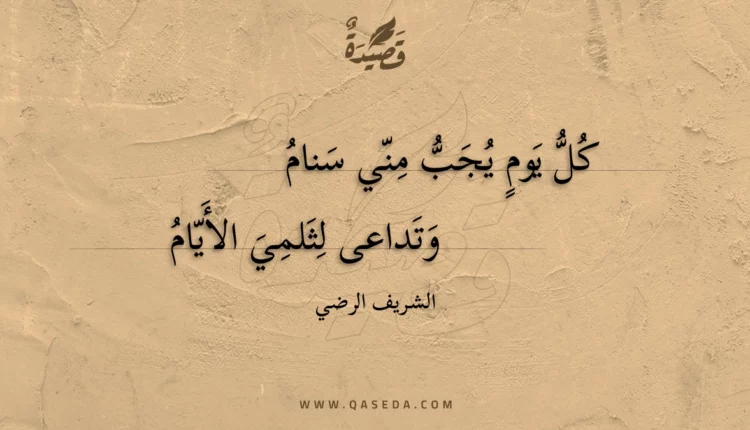 قَصِيدَةٌ
كُلُّ يَومٍ يُجَبُّ مِنّي سَنامُ
وَتَداعى لِثَلمِيَ الأَيّامُ
الشريف الرضي
WWW.QASEDA.COM